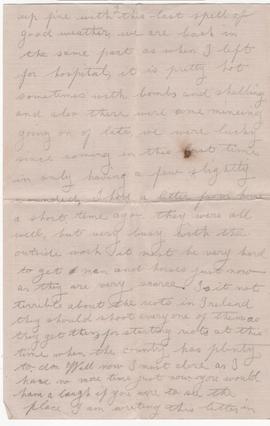 up fine with this last spell of
good weather, we are back in
the same part as when I left
for hospital, it is pretty hot
sometimes with bombs and shelling
and also there were some mineing
going on of late, we were lucky
since coming in this last time
in only having a few slightly
wounded, I had a letter from home
a short time ago they were all
well, but very busy with the
outside work it must be very hard
to get a man and horses just now
as they are very scarce. Is it not
terrible about the riots in Ireland
they should shoot every one of them as
they get them for starting riots at this
time when the country has plenty
to do. Well now I must close as I
have no more time just now you would
have a laugh if you were to see the
place I am writing this letter in